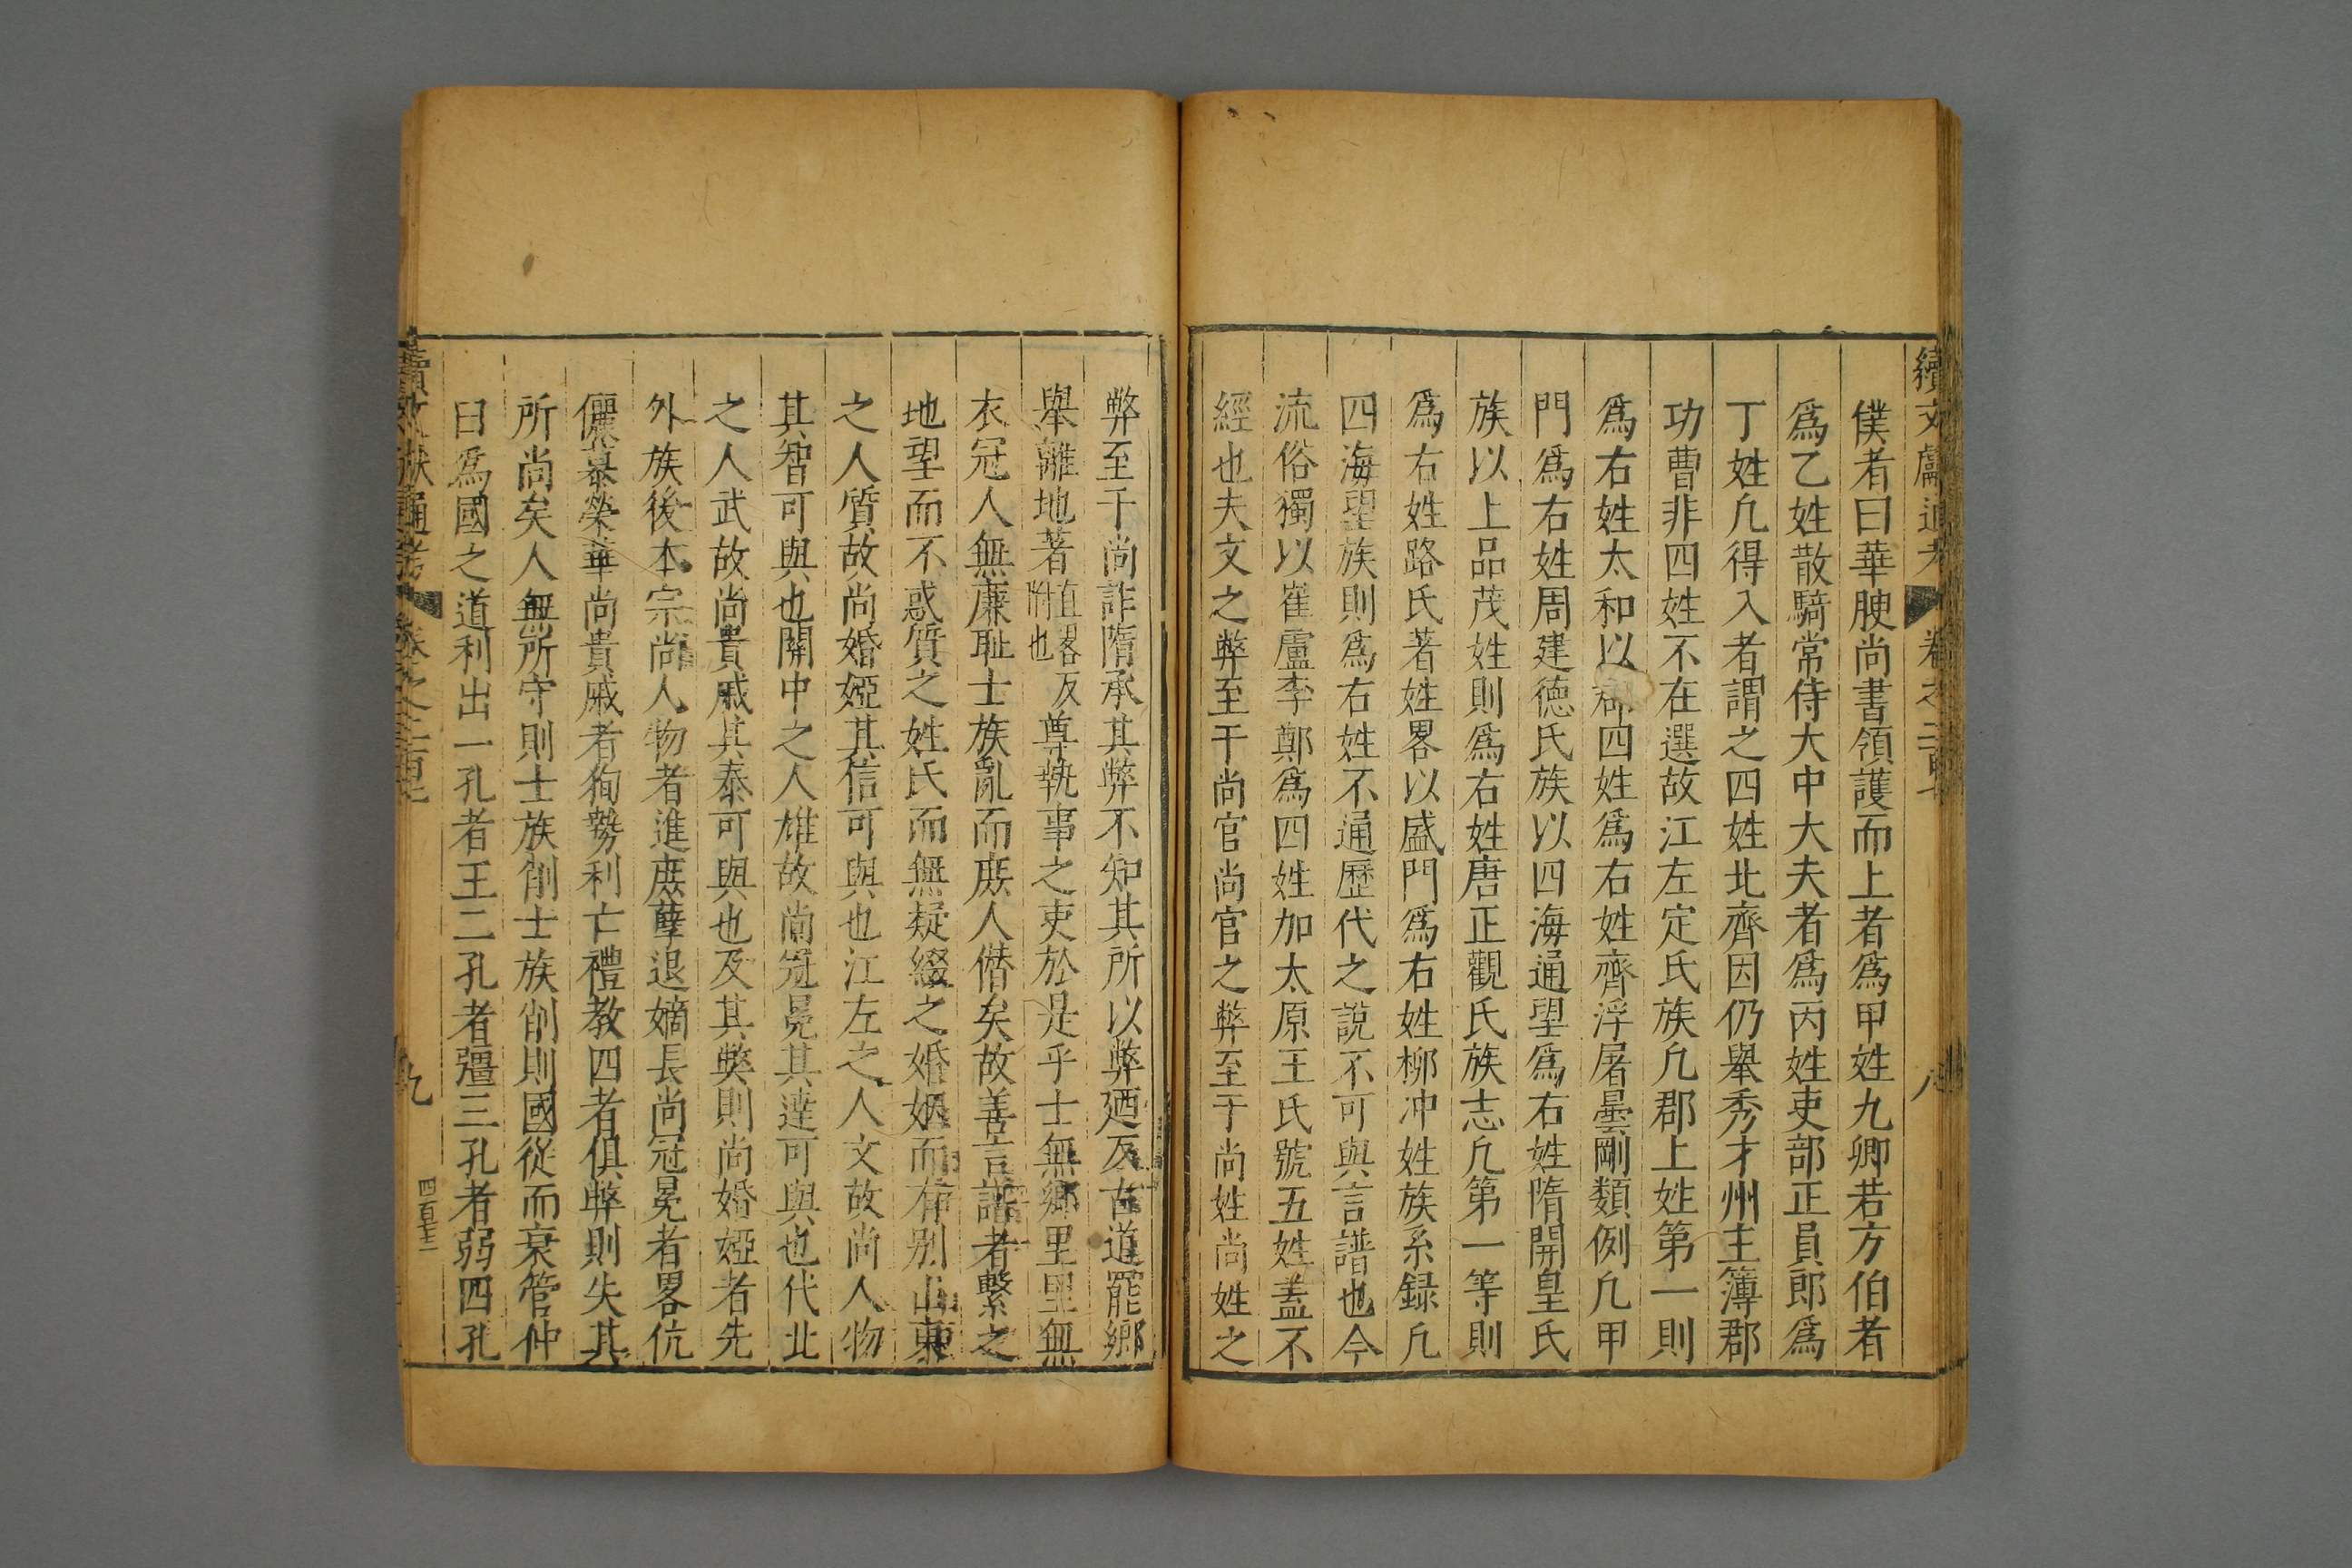 續文獻通考 卷之二百七 八
僕者曰華腴尚書領護而上者爲甲姓九卿若方伯者
爲乙姓散騎常侍大中大夫者爲丙姓吏部正員郎爲
丁姓凢得入者謂之四姓北齊因仍舉秀才州主簿郡
功曹非四姓不在選故江左定氏族凢郡上姓第一則
爲右姓太和以郡四姓爲右姓齊浮屠曇剛類例凢甲
門爲右姓周建德氏族以四海通望爲右姓隋開皇氏
族以上品茂姓則爲右姓唐正觀氏族志凢第一等則
爲右姓路氏著姓畧以盛門爲右姓柳冲姓族系録凢
四海望族則爲右姓不通歷代之說不可與言譜也今
流俗獨以崔盧李鄭爲四姓加太原王氏號五姓蓋不
經也夫文之弊至于尚官尚官之弊至于尚姓尚姓之
弊至于尚詐隋承其弊不知其所以弊廼反古道罷鄉
舉離地著直畧反附也尊執事之吏於是乎士無鄉里里無
衣冠人無廉耻士族亂而庶人僭矣故善言譜者繫之
地望而不惑質之姓氏而無疑綴之婚姻而有别山東
之人質故尚婚婭其信可與也江左之人文故尚人物
其智可與也關中之人雄故尚冠冕其達可與也代北
之人武故尚貴戚其泰可與也及其弊則尚婚婭者先
外族後本宗尚人物者進庶孽退嫡長尚冠冕者畧伉
儷慕榮華尚貴戚者狥勢利亡禮教四者俱弊則失其
所尚矣人無所守則士族削士族削則國從而衰管仲
曰爲國之道利出一孔者王二孔者彊三孔者弱四孔
續文獻通考 卷之二百七 九 四百七十二